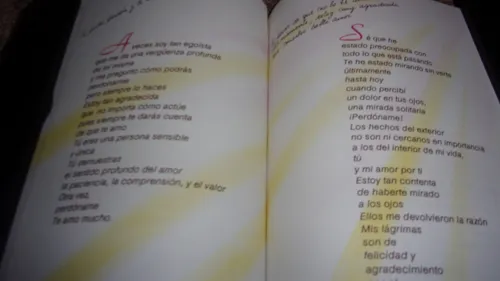 A veces soy tan egoísta
que me da una vergüenza profunda
de mí misma
y me pregunto cómo podrás
perdonarme
pero siempre lo haces
Estoy tan agradecida
que no importa cómo actúe
pues siempre te darás cuenta
de que te amo
Tú eres una persona sensible
y única
Tú demuestras
el sentido profundo del amor
la paciencia, la comprensión, y el valor
Otra vez,
perdóname
Te amo mucho.
Sé que he
estado preocupada con
todo lo que está pasando
Te he estado mirando sin verte
últimamente
hasta hoy
cuando percibí
un dolor en tus ojos,
una mirada solitaria
¡Perdóname!
Los hechos del exterior
no son ni cercanos en importancia
a los del interior de mi vida,
tú
y mi amor por ti
Estoy tan contenta
de haberte mirado
a los ojos
Ellos me devolvieron la razón
Mis lágrimas
son de
felicidad y
agradecimiento